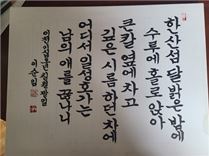 한산섬 달 밝은 밤에
수루에 홀로 앉아
큰 칼 옆에 차고
깊은 시름 하던 차에
어디서 일성호가는
남의 애를 끊나니